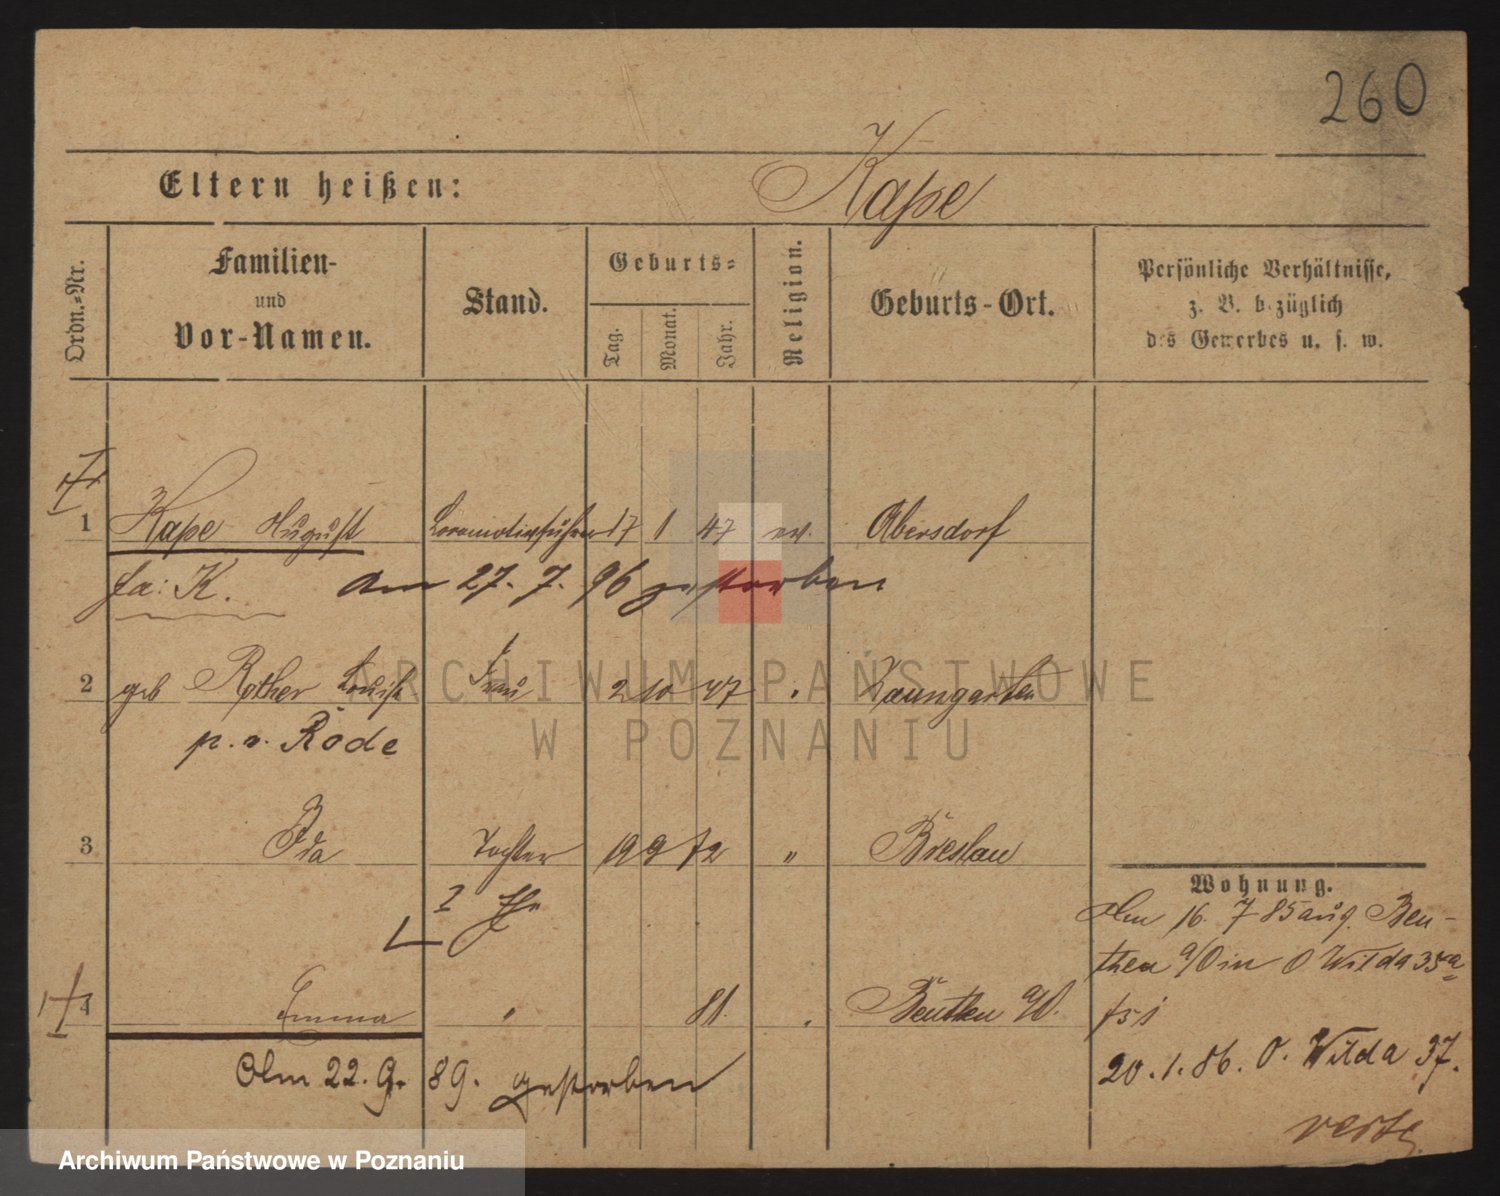 260
Eltern heißen: Kape
Ordn.-Nr.
Familien-
und
Vor-Namen.
Stand.
Geburts-
Tag.
Monat.
Jahr.
Religion.
Geburts-Ort.
Persönliche Verhältnisse,
z. B. bezüglich
des Gewerbes u. s. w.
1 Kape August Locomotivführer 17 1 47 ev. Abersdorf
fa: K. Am 27. 7. 96 gestorben
2 geb Rother Louise Frau 2 10 47 " Baumgarten
p. v. Rode
3 Ida Tochter 19 9 72 " Breslau
2 Ehe
4 Emma " 81. " Beuthen a/O.
Am 22. 9. 89. gestorben
Wohnung.
Am 16. 7 85 aus Beu-
then a/O in O Wilda 35a
20. 1. 86. O. Wilda 37.
verte
ARCHIWUM PAŃSTWOWE
W POZNANIU
Archiwum Państwowe w Poznaniu